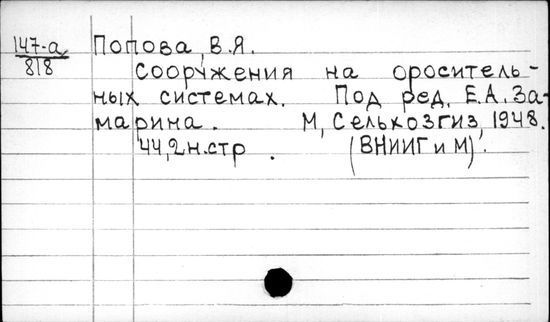 147-а Попова, В.Я.
818 Сооружения на ороситель-
ных системах. Под ред. Е.А. За-
марина. М, Сельхозгиз, 1948.
44,2 н.стр. (ВНИИГиМ).